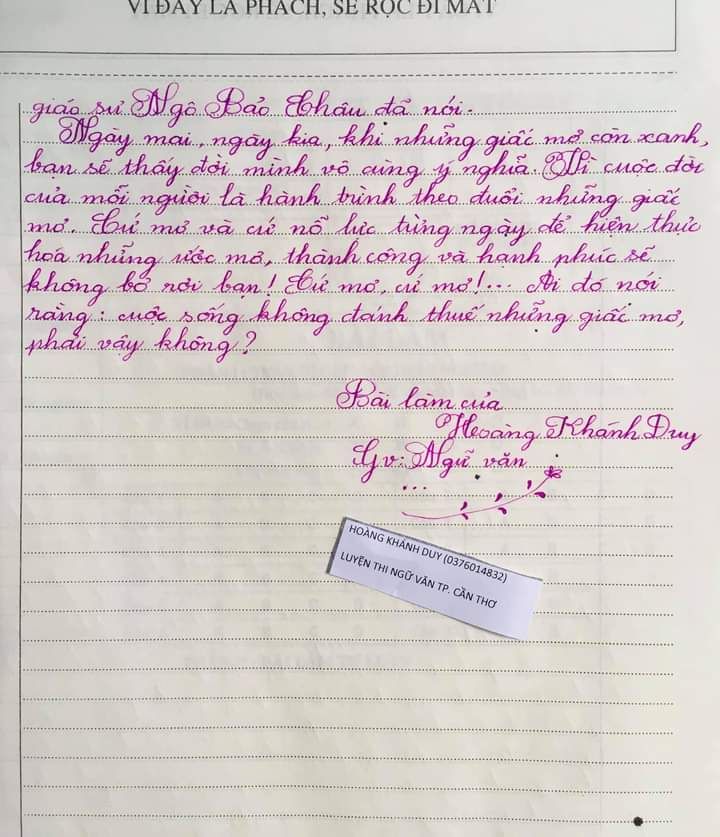 VÌ ĐÂY LÀ PHÁCH, SẼ RỌC ĐI MẤT
giáo sư Ngô Bảo Châu đã nói.
Ngày mai, ngày kia, khi những giấc mơ còn xanh,
bạn sẽ thấy đời mình vô cùng ý nghĩa. Vì cuộc đời
của mỗi người là hành trình theo đuổi những giấc
mơ. Cứ mơ và cứ nỗ lực từng ngày để hiện thực
hoá những ước mơ, thành công và hạnh phúc sẽ
không bỏ rơi bạn! Cứ mơ, cứ mơ!... Ai đó nói
rằng: cuộc sống không đánh thuế những giấc mơ,
phải vậy không?
Bài làm của
Hoàng Khánh Duy
Gv: Ngữ văn
...
HOÀNG KHÁNH DUY (0376014832)
LUYỆN THI NGỮ VĂN TP. CẦN THƠ